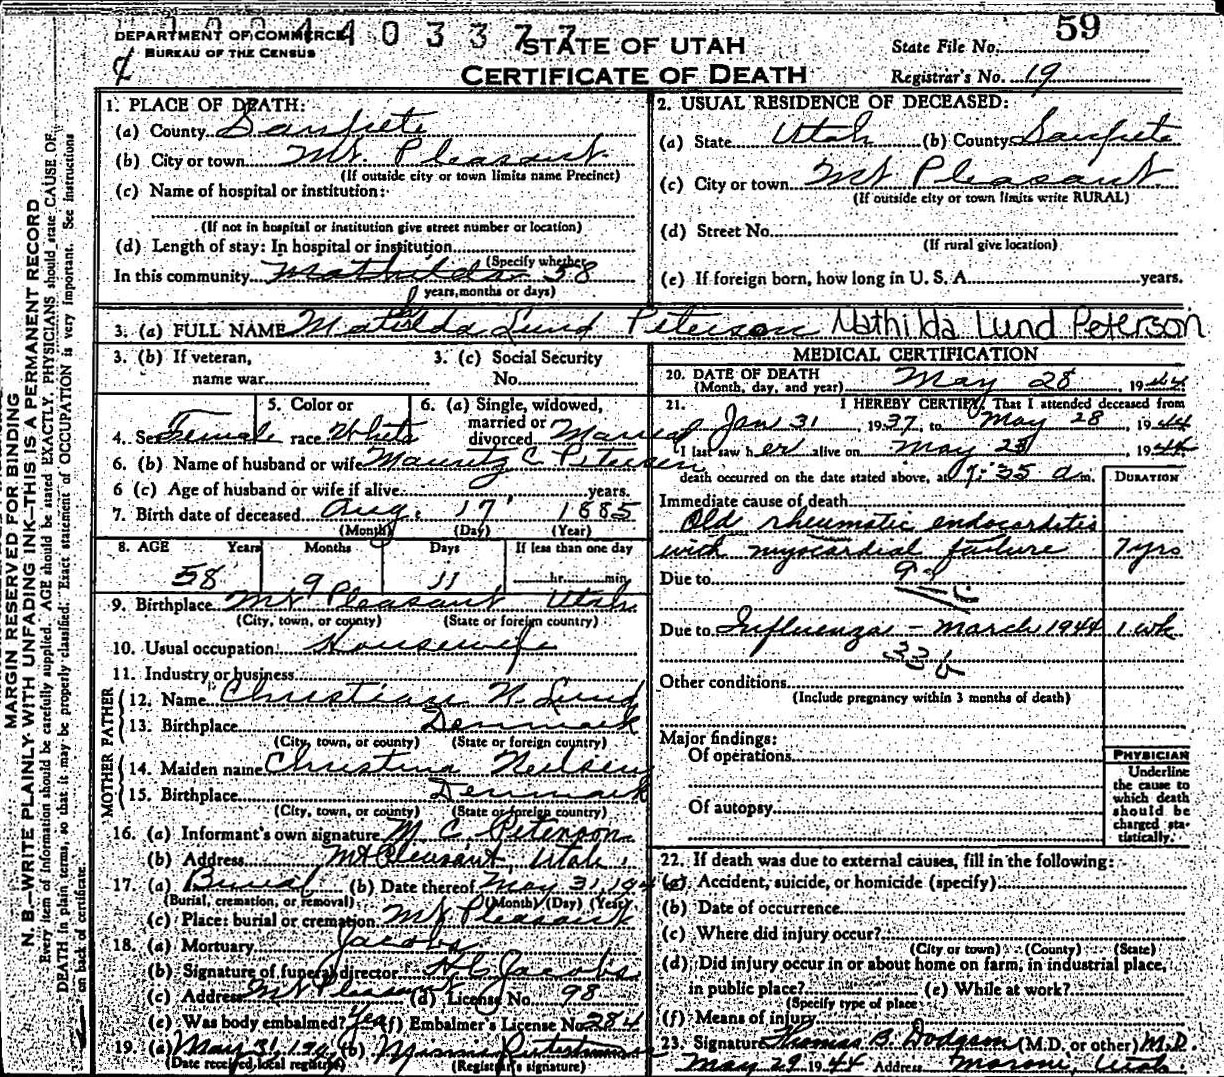 1004403377
DEPARTMENT OF COMMERCE
BUREAU OF THE CENSUS
STATE OF UTAH
CERTIFICATE OF DEATH
State File No. 59
Registrar's No. 19
MARGIN RESERVED FOR BINDING
N. B.—WRITE PLAINLY WITH UNFADING INK—THIS IS A PERMANENT RECORD
Every item of information should be carefully supplied. AGE should be stated EXACTLY. PHYSICIANS should state CAUSE OF
DEATH in plain terms, so that it may be properly classified. Exact statement of OCCUPATION is very important. See instructions
on back of certificate.
1. PLACE OF DEATH:
(a) County Sanpete
(b) City or town Mt. Pleasant
(If outside city or town limits name Precinct)
(c) Name of hospital or institution:
(If not in hospital or institution give street number or location)
(d) Length of stay: In hospital or institution
(Specify whether
In this community Mathilda 58
years, months or days)
2. USUAL RESIDENCE OF DECEASED:
(a) State Utah (b) County Sanpete
(c) City or town Mt Pleasant
(If outside city or town limits write RURAL)
(d) Street No.
(If rural give location)
(e) If foreign born, how long in U. S. A. years.
3. (a) FULL NAME Mathilda Lund Peterson Mathilda Lund Peterson
3. (b) If veteran,
name war
3. (c) Social Security
No.
4. Sex Female
5. Color or
race White
6. (a) Single, widowed,
married or
divorced Married
6. (b) Name of husband or wife Mauritz C. Petersen
6 (c) Age of husband or wife if alive years.
7. Birth date of deceased Aug. 17 1885
(Month) (Day) (Year)
8. AGE Years Months Days If less than one day
58 9 11 hr. min.
9. Birthplace Mt Pleasant Utah
(City, town, or county) (State or foreign country)
10. Usual occupation Housewife
11. Industry or business
FATHER
12. Name Christian N. Lund
13. Birthplace Denmark
(City, town, or county) (State or foreign country)
MOTHER
14. Maiden name Christina Neilsen
15. Birthplace Denmark
(City, town, or county) (State or foreign country)
16. (a) Informant's own signature M. C. Peterson
(b) Address Mt Pleasant, Utah.
17. (a) Burial (b) Date thereof May 31, 194
(Burial, cremation, or removal) (Month) (Day) (Year)
(c) Place: burial or cremation Mt Pleasant
18. (a) Mortuary Jacobs
(b) Signature of funeral director H C Jacobs
(c) Address Mt Pleasant (d) License No. 98
(e) Was body embalmed? Yes (f) Embalmer's License No. 284
19. (a) May 31, 194 (b)
(Date received local registrar) (Registrar's signature)
MEDICAL CERTIFICATION
20. DATE OF DEATH
(Month, day, and year) May 28, 1944
21. I HEREBY CERTIFY, That I attended deceased from
Jan 31 1937, to May 28, 1944
I last saw her alive on May 28, 1944
death occurred on the date stated above, at 1:35 a m.
DURATION
Immediate cause of death
Old rheumatic endocarditis
with myocardial failure 7 yrs
Due to
Due to Influenza - March 1944 1 wk
33b
Other conditions
(Include pregnancy within 3 months of death)
Major findings:
Of operations
Of autopsy
PHYSICIAN
Underline
the cause to
which death
should be
charged sta-
tistically.
22. If death was due to external causes, fill in the following:
(a) Accident, suicide, or homicide (specify)
(b) Date of occurrence
(c) Where did injury occur?
(City or town) (County) (State)
(d) Did injury occur in or about home on farm, in industrial place,
in public place? (e) While at work?
(Specify type of place
(f) Means of injury
23. Signature Thomas B. Dodgson (M.D. or other) M.D.
May 29 1944 Address Moroni, Utah.